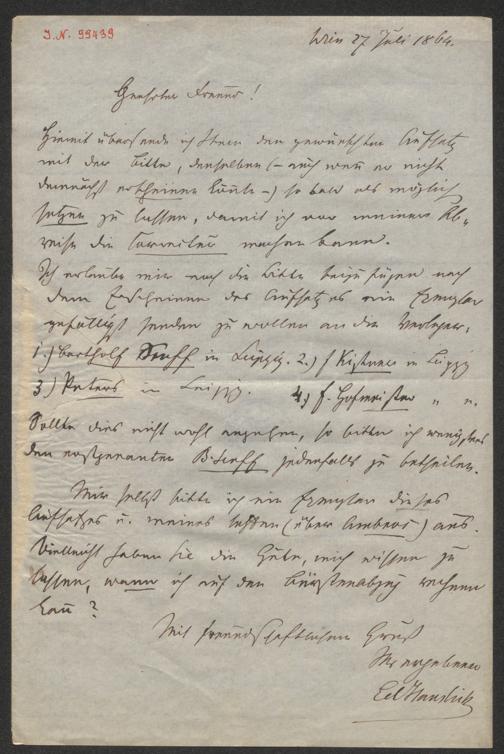 I.N. 99439
Wien 27 Juli 1864.
Geehrter Freund!
Hiemit übersende ich Ihnen den gewünschten Aufsatz
mit der Bitte, denselben (– auch wenn er nicht
demnächst erscheinen könnte –) so bald als möglich
setzen zu lassen, damit ich vor meiner Ab-
reise die Correctur machen kann.
Ich erlaube mir noch die Bitte beizufügen nach
dem Erscheinen des Aufsatzes ein Exemplar
gefälligst senden zu wollen an die Verleger:
1.) Bartholf Senff in Leipzig. 2.) f Kistner in Leipzig
3) Peters in Leipzig. 4) f. Hofmeister " "
Sollte dies nicht wohl angehen, so bitte ich wenigstens
den erstgenannten B. Senff jedenfalls zu betheilen.
Mir selbst bitte ich ein Exemplar dieses
Aufsatzes u. meines letzten (über Ambros) aus.
Vielleicht haben Sie die Güte, mich wissen zu
lassen, wann ich auf den Bürstenabzug rechnen
kann?
Mit freundschaftlichem Gruß
Ihr ergebener
Ed Hanslick